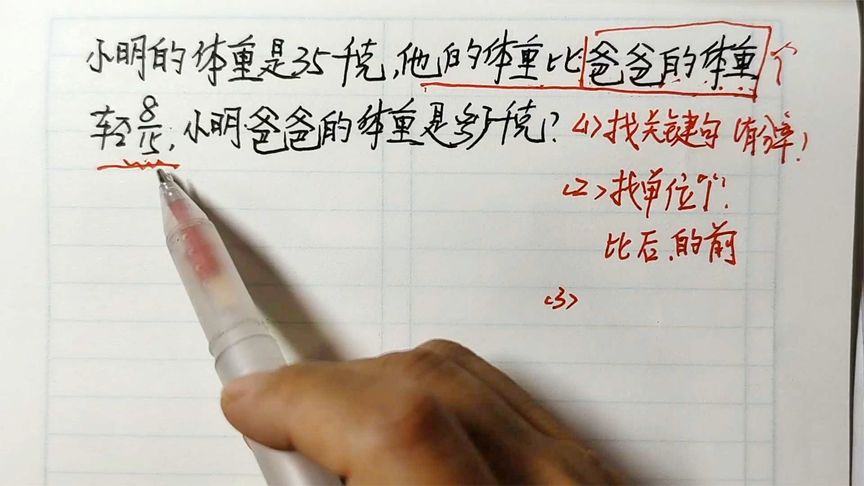 小明的体重是35千克,他的体重比爸爸的体重
轻8/15,小明爸爸的体重是多少千克?
<1>找关键句 (有分率)
<2>找单位"1"
比后,的前
<3>